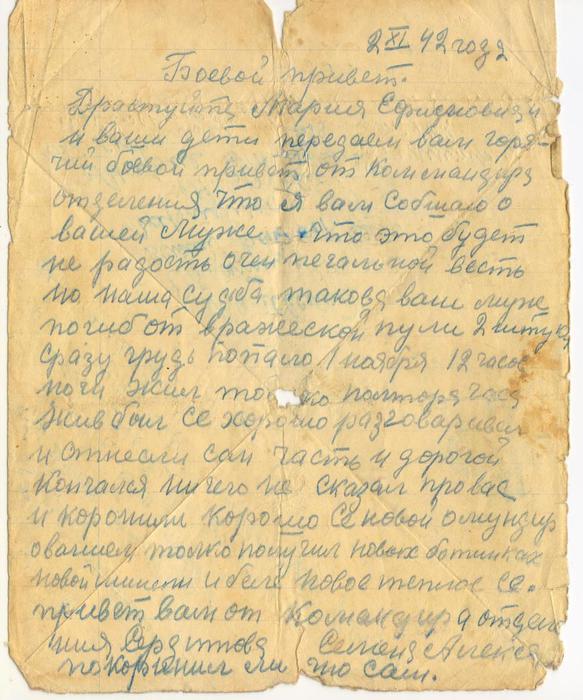 2 XI 42 года
Боевой привет.
Драстуйте Мария Ефисмовна и
и ваши дети передаем вам горя-
чий боевой привет от Коммандира
отделения что я вам Собшаю о
вашей Муже что это будет
не радость очен печальной весть
но наша судба такова ваш муж
погиб от вражеской пули 2 штуки
сразу грудь попало 1 ноября 12 часов
ночи жил только полтора часа
жив был се хорошо разговаривал
и отнесли сан часть и дорогой
кончался ничего не сказал про вас
и коронили хорошо се новой омундир
ованием только получил новых ботинках
новой шинели и беле новое теплое се.
привет вам от Командира отделе
ния Семена Алекса
покоронил ли его сам.